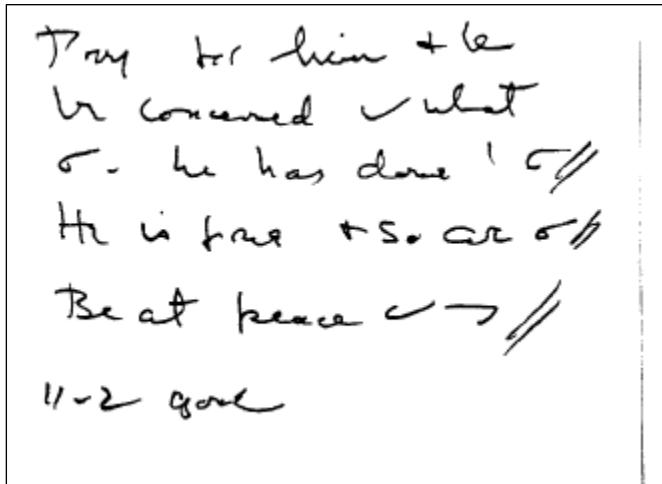 Pray for him + be
concerned what
he has done
He is free + so are
Be at peace
11-2